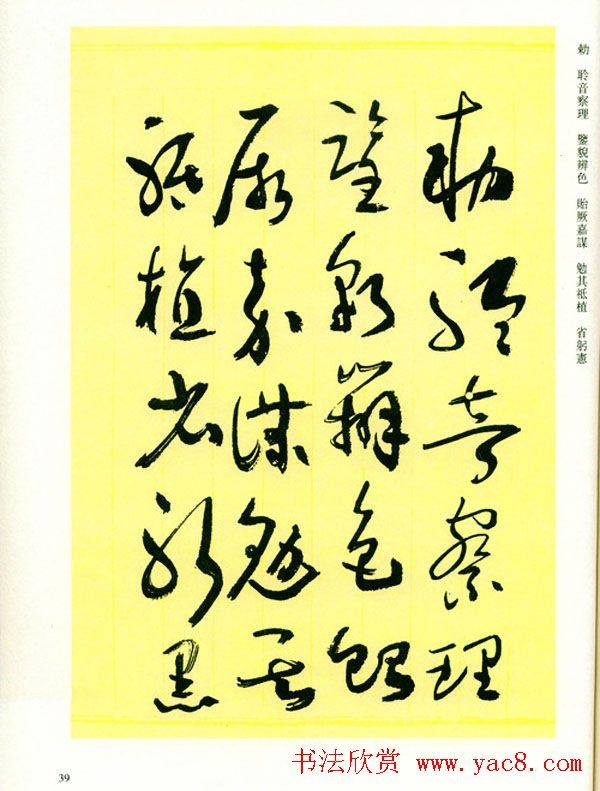 勅 聆音察理 鑒貌辨色 貽厥嘉謀 勉其祗植 省躬憲
勅聆音察理
鑒貌辨色貽
厥嘉謀勉其
祗植省躬
39
书法欣赏 www.yac8.com